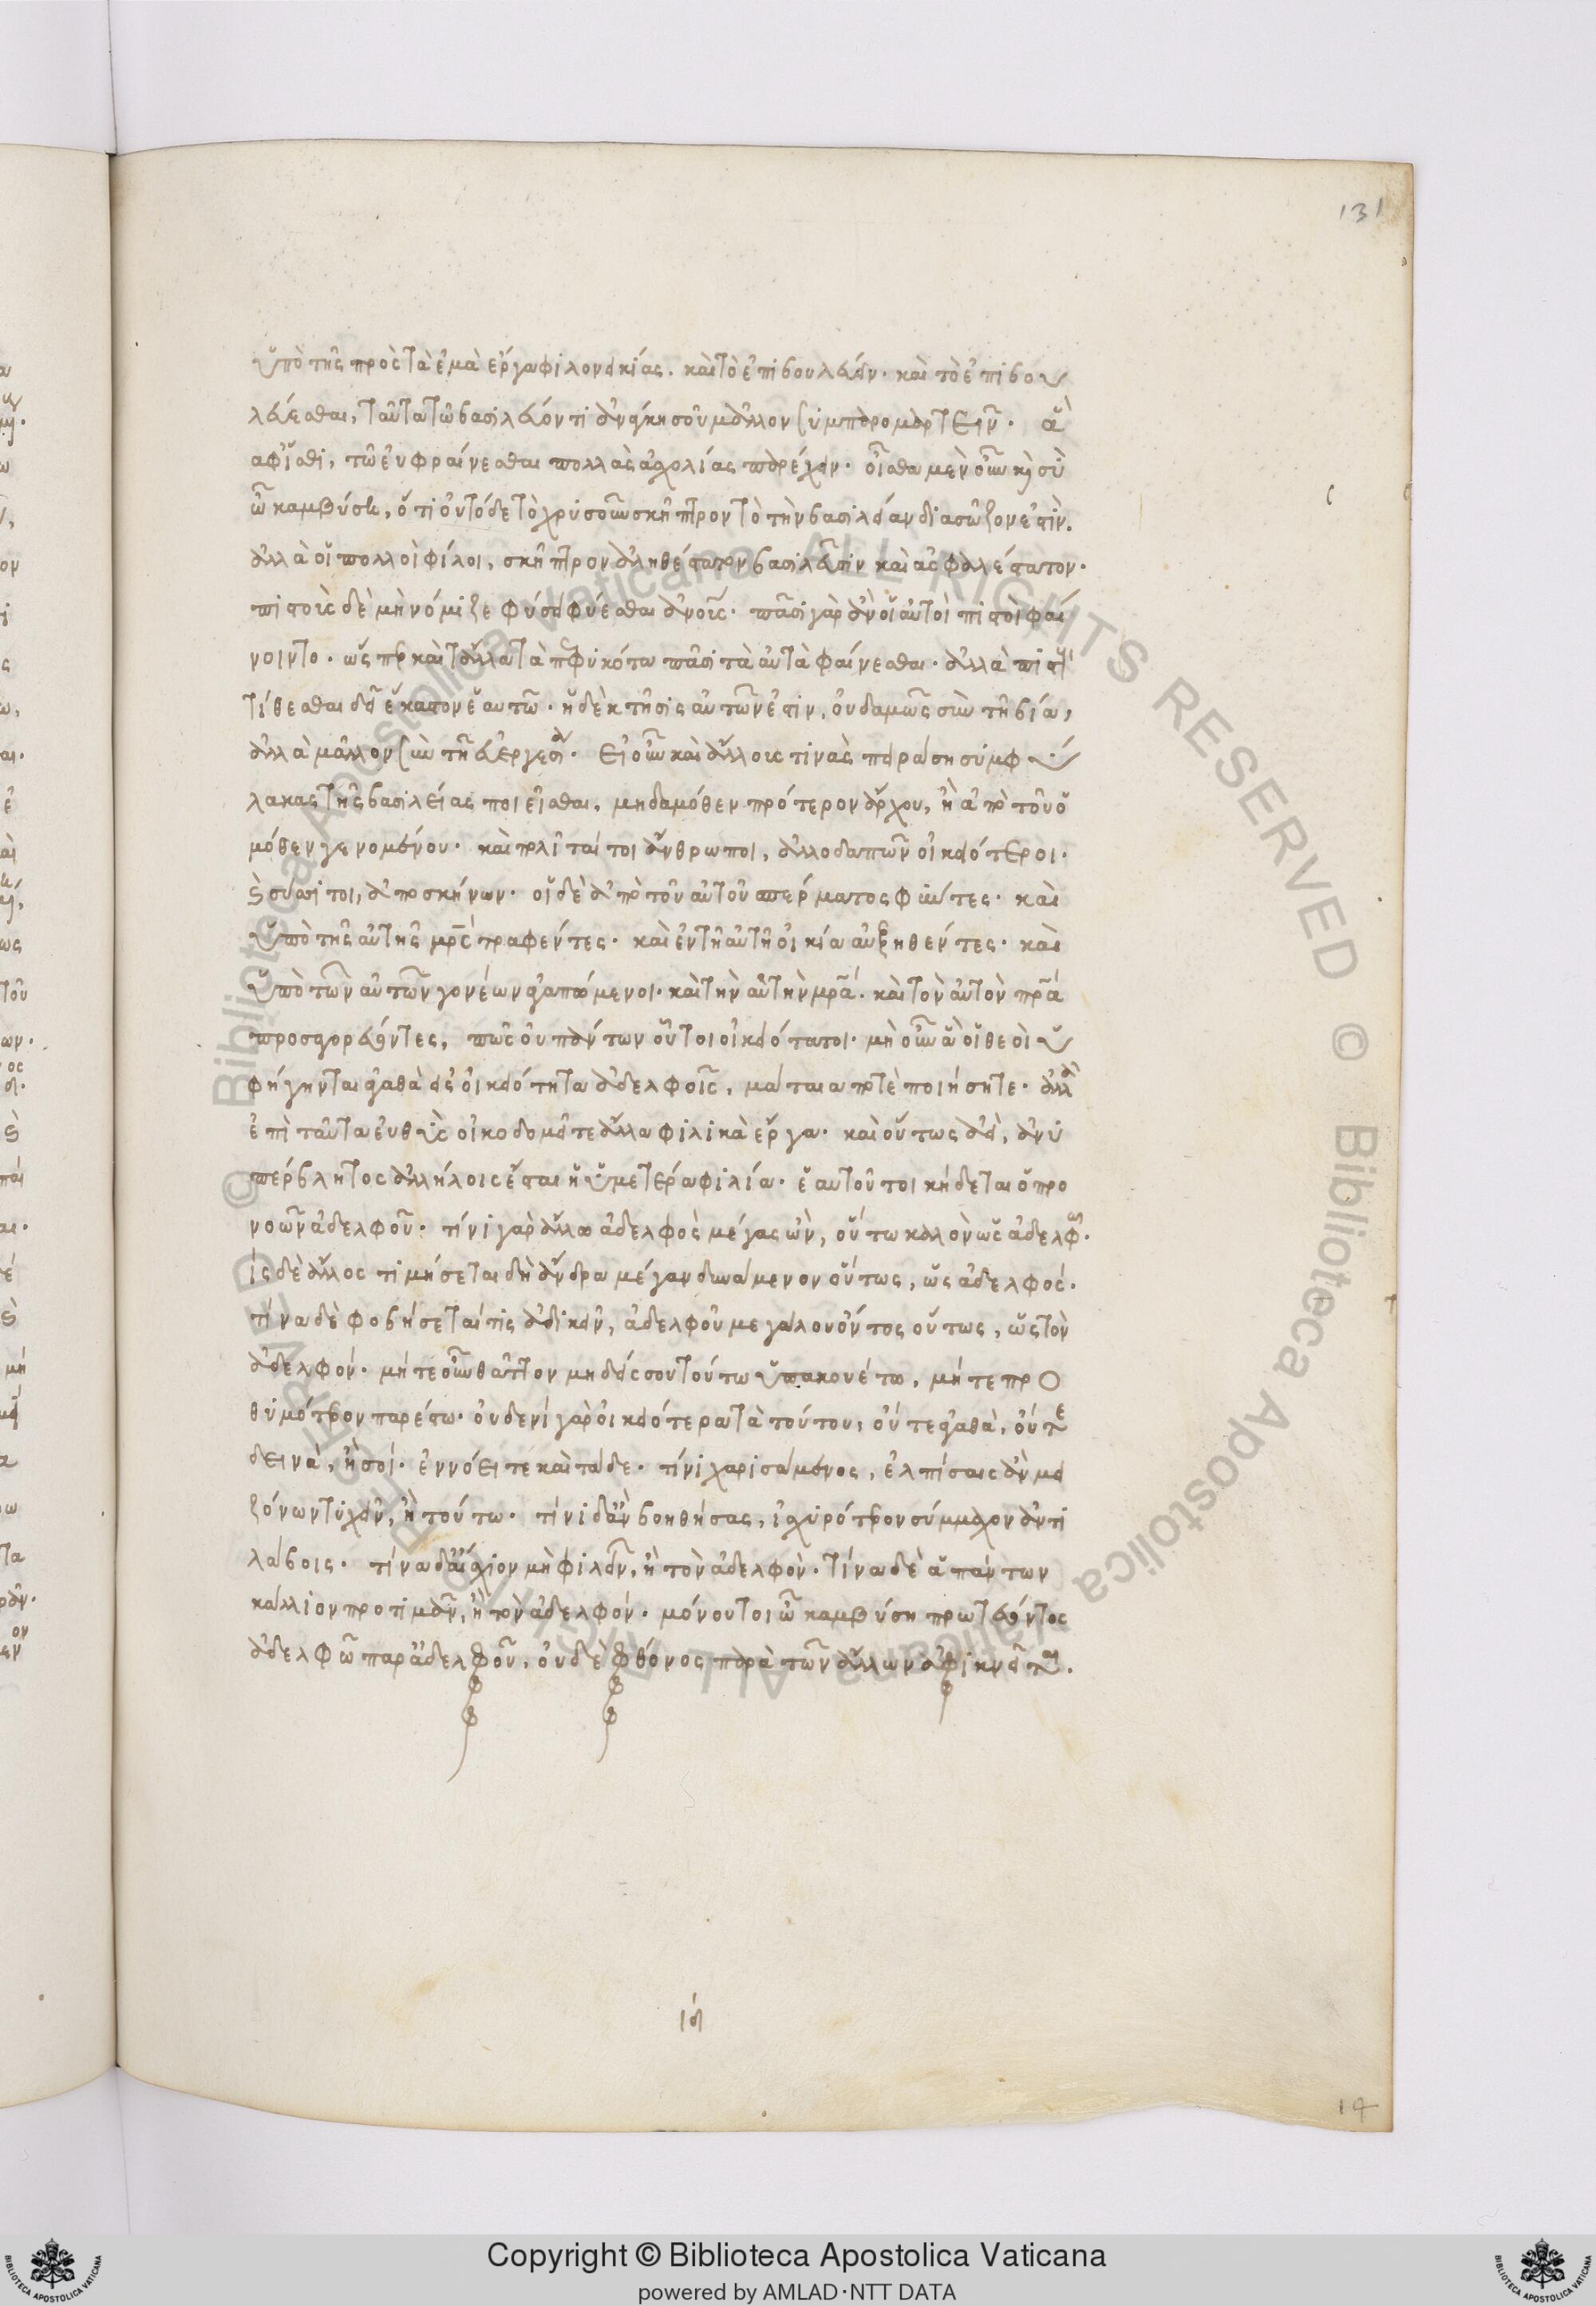 131
ὑπὸ τῆς πρὸς τὰ ἐμὰ ἔργα φιλονεικίας. καὶ τὸ ἐπιβουλεύειν. καὶ τὸ ἐπιβου
λεύεσθαι, ταῦτα τῶ βασιλεύοντι ἀνάγκη σοῦ μᾶλλον συμπαρομαρτεῖν. ἃ
σάφ' ἴσθι, τῶ εὐφραίνεσθαι πολλὰς ἀσχολίας παρέχειν. οἶσθα μὲν οὖν κỳ σὺ
ὦ καμβύση, ὅτι οὐ τόδε τὸ χρυσοῦν σκῆπτρον τὸ τὴν βασιλείαν διασῶζον ἐστίν.
ἀλλὰ οἱ πολλοὶ φίλοι, σκῆπτρον ἀληθέστατον βασιλεῦσιν καὶ ἀσφαλέστατον.
πιστοὺς δὲ μὴ νόμιζε φύσει φύεσθαι ἀνους. πᾶσι γὰρ ἂν οἱ αὐτοὶ πιστοὶ φαί
νοιντο. ὥσπερ καὶ τἄλλα τὰ πεφυκότα πᾶσι τὰ αὐτὰ φαίνεσθαι. ἀλλὰ πιστοὺς
τίθεσθαι δεῖ ἕκαστον ἑαυτῶ. ἡ δὲ κτῆσις αὐτῶν ἐστιν, οὐδαμῶς σὺν τῆ βία,
ἀλλὰ μᾶλλον σὺν τῆ εὐεργεσία. εἰ οὖν καὶ ἄλλους τινὰς πειράση συμφύ
λακας τῆς βασιλείας ποιεῖσθαι, μηδαμόθεν πρότερον ἄρχου, ἢ ἀπὸ τοῦ ὁ
μόθεν γενομένου. καὶ πολῖταί τοι ἄνθρωποι, ἀλλοδαπῶν οἰκειότεροι.
κỳ σύσσιτοι, ἀποσκήνων. οἱ δὲ ἀπὸ τοῦ αὐτοῦ σπέρματος φύντες. καὶ
ὑπὸ τῆς αὐτῆς μρ̅ς τραφέντες. καὶ ἐν τῆ αὐτῆ οἰκία αὐξηθέντες. καὶ
ὑπὸ τῶν αὐτῶν γονέων ἀγαπώμενοι. καὶ τὴν αὐτὴν μρ̅α. καὶ τὸν αὐτὸν πρ̅α
προσαγορεύοντες, πῶς οὐ πάντων οὗτοι οἰκειότατοι. μὴ οὖν ἃ οἱ θεοὶ ὑ
φήγηνται ἀγαθὰ εἰς οἰκειότητα ἀδελφοῖς, μάταια ποτὲ ποιήσητε. ἀλλ'
ἐπὶ ταῦτα εὐθὺς οἰκοδομεῖτε ἄλλα φιλικὰ ἔργα. καὶ οὕτως ἀεὶ, ἀνυ
πέρβλητος ἀλλήλοις ἔσται ἡ ὑμετέρα φιλία. ἑαυτοῦ τοι κήδεται ὁ προ
νοῶν ἀδελφοῦ. τίνι γὰρ ἄλλω ἀδελφὸς μέγας ὢν, οὕτω καλὸν ὡς ἀδελφῶ.
ίς δὲ ἄλλος τιμήσεται δὴ ἄνδρα μέγαν δυνάμενον οὕτως, ὡς ἀδελφός.
τίνα δὲ φοβήσεταί τις ἀδικεῖν, ἀδελφοῦ μεγάλου ὄντος οὕτως, ὡς τὸν
ἀδελφόν. μήτε οὖν θᾶττον μηδείς σου τούτω ὑπακουέτω, μήτε προ
θυμότερον παρέστω. οὐδενί γὰρ οἰκειότερα τὰ τούτου, οὔτε ἀγαθὰ, οὔτε
δεινὰ, ἢ σοί. ἐννόει τε καὶ τάδε. τίνι χαρισάμενος, ἐλπίσαις ἂν μει
ζόνων τυχεῖν, ἢ τούτω. τίνι δ' ἂν βοηθήσας, ἰσχυρότερον σύμμαχον ἀντι
λάβοις. τίνα δ' αἴσχιον μὴ φιλεῖν, ἢ τὸν ἀδελφὸν. τίνα δὲ ἁπάντων
κάλλιον προτιμᾶν, ἢ τὸν ἀδελφόν. μόνου τοι ὦ καμβύση πρωτεύοντος
ἀδελφῶ παρ' ἀδελφοῦ, οὐδὲ φθόνος παρὰ τῶν ἄλλων ἀφικνεῖται.
14
Copyright © Biblioteca Apostolica Vaticana
powered by AMLAD·NTT DATA